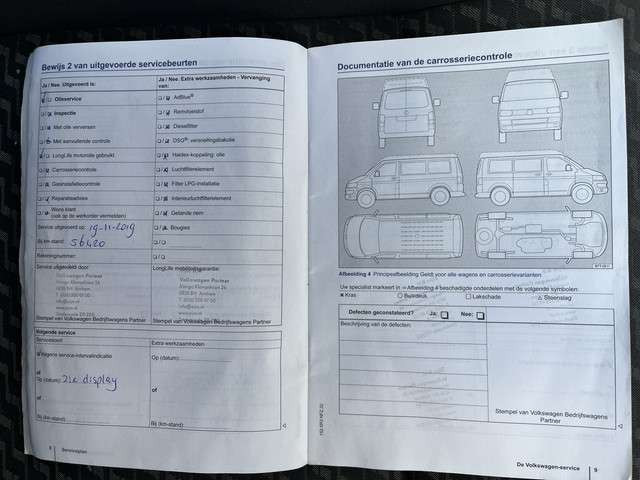 Bewijs 2 van uitgevoerde servicebeurten
Ja / Nee Uitgevoerd is:
Ja / Nee Extra werkzaamheden - Vervanging van:
Olieservice
AdBlue®
Inspectie
Remvloeistof
Met olie verversen
Dieselfilter
Met aanvullende controle
DSG® versnellingsbakolie
LongLife motorolie gebruikt
Haldex-koppeling: olie
Carrosseriecontrole
Luchtfilterelement
Gasinstallatiecontrole
Filter LPG-installatie
Reparatieadvies
Interieurluchtfilterelement
Wens klant
(ook op de werkorder vermelden)
Getande riem
Service uitgevoerd op: 19-11-2019
Bougies
Bij km-stand: 56420
Rekeningnummer:
Service uitgevoerd door:
LongLife mobiliteitsgarantie:
Volkswagen Partner
Volkswagen Partner
Stempel van Volkswagen Bedrijfswagens Partner
Stempel van Volkswagen Bedrijfswagens Partner
Volgende service
Servicesoort
Extra werkzaamheden
Volgens service-intervalindicatie
Op (datum):
of
Op (datum): zie display
of
of
Bij (km-stand)
Bij (km-stand)
8 Serviceplan
Documentatie van de carrosseriecontrole
Afbeelding 4 Principeafbeelding Geldt voor alle wagens en carrosserievarianten
Uw specialist markeert in Afbeelding 4 beschadigde onderdelen met de volgende symbolen:
Kras
Buts/deuk
Lakschade
Steenslag
Defecten geconstateerd? Ja: Nee:
Beschrijving van de defecten:
Stempel van Volkswagen Bedrijfswagens
Partner
De Volkswagen-service 9